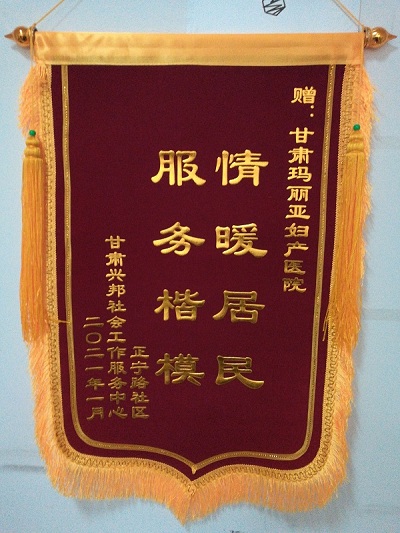 赠：甘肃玛丽亚妇产医院
情暖居民
服务楷模
正宁路社区
甘肃兴邦社会工作服务中心
二〇二一年一月